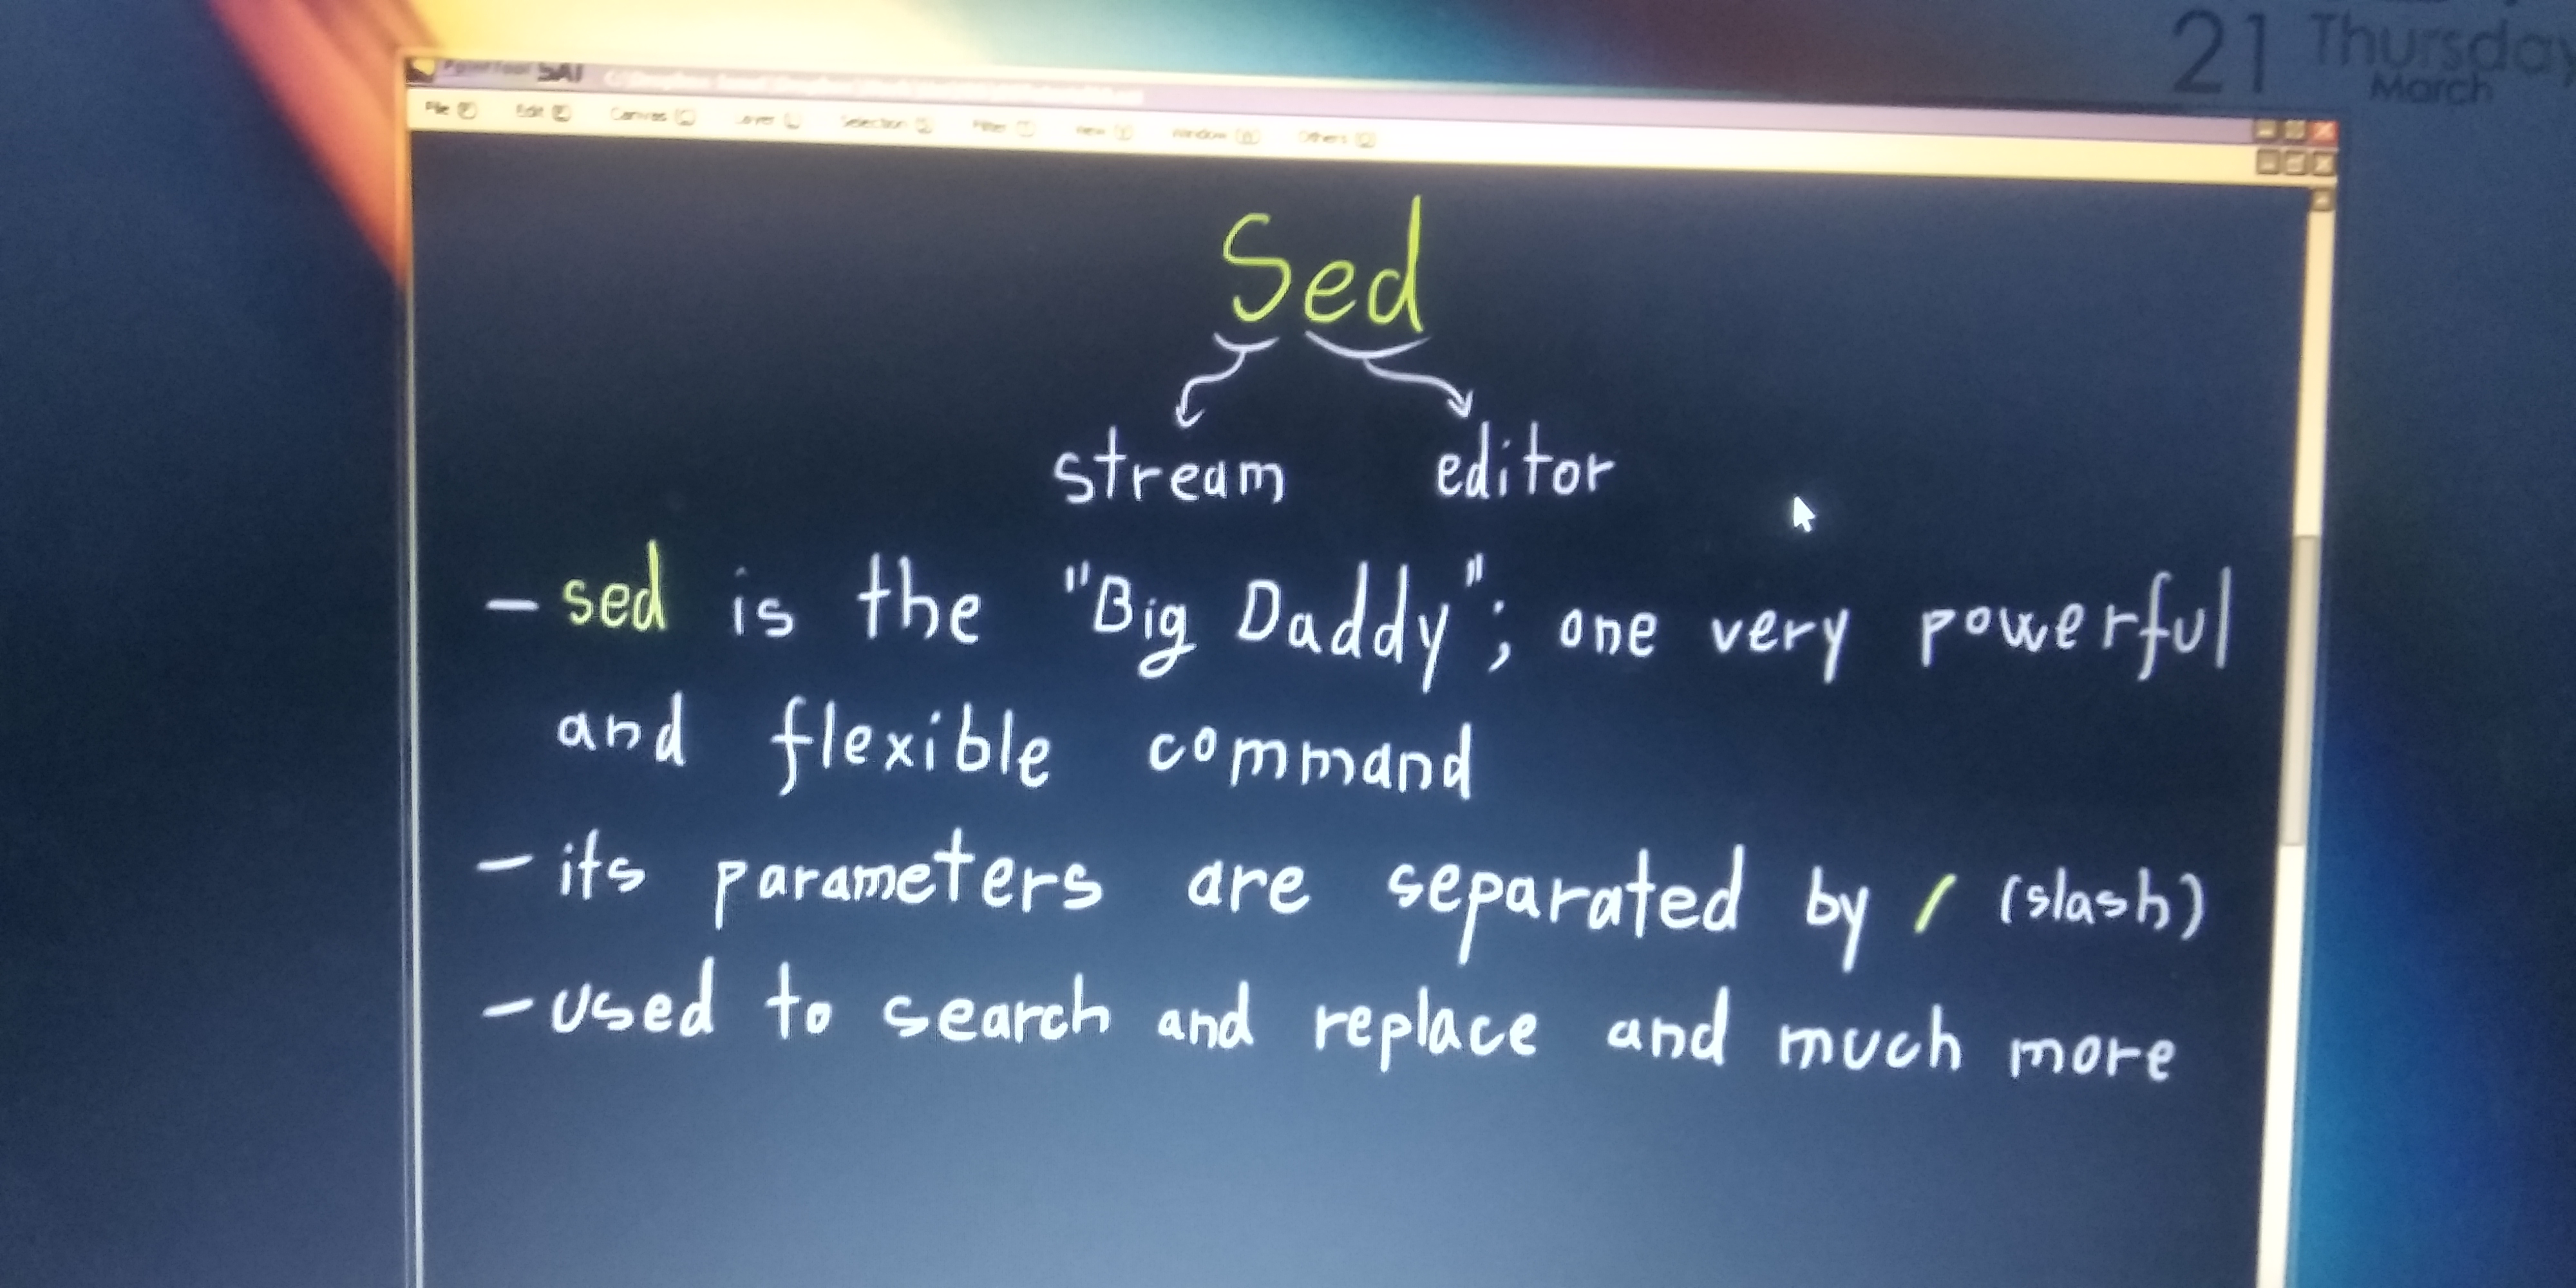 21 Thursday
March
PaintTool SAI
File Edit Canvas Layer Selection Filter View Window Others
Sed
stream editor
– sed is the "Big Daddy"; one very powerful
and flexible command
– its parameters are separated by / (slash)
– used to search and replace and much more